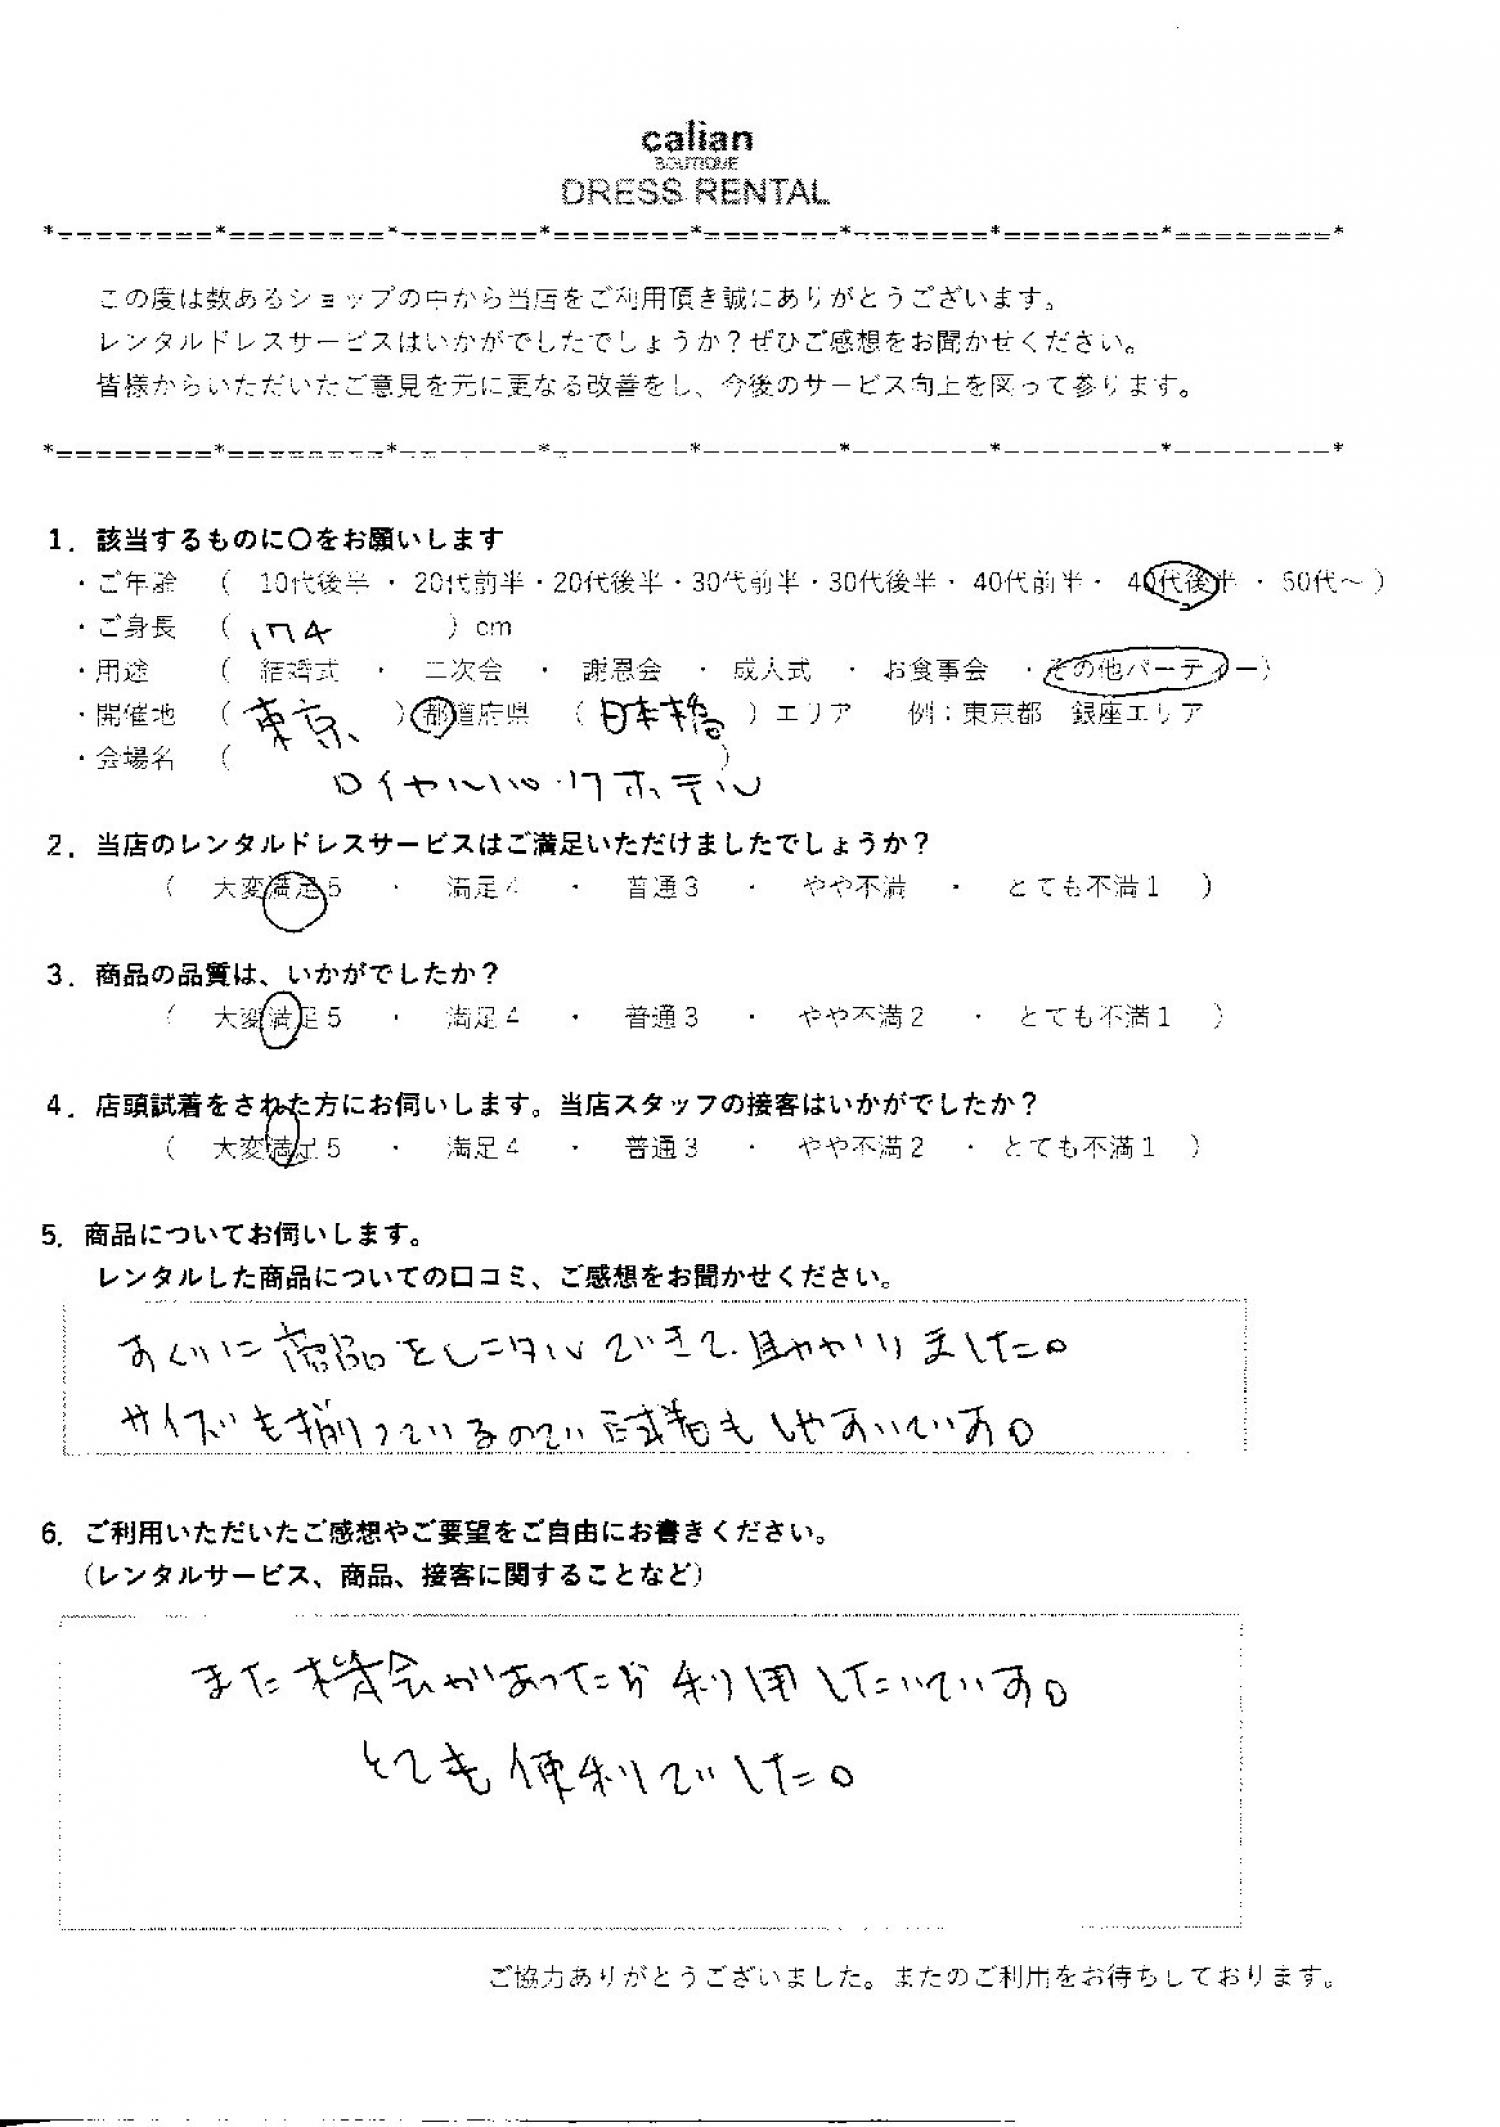 calian
BOUTIQUE
DRESS RENTAL
*========*========*=======*=======*=======*=======*========*========*
この度は数あるショップの中から当店をご利用頂き誠にありがとうございます。
レンタルドレスサービスはいかがでしたでしょうか？ぜひご感想をお聞かせください。
皆様からいただいたご意見を元に更なる改善をし、今後のサービス向上を図って参ります。
*========*========*=======*=======*=======*=======*========*========*
1．該当するものに〇をお願いします
・ご年齢　（　10代後半 ・ 20代前半・20代後半・30代前半・30代後半・ 40代前半・ 40代後半 ・ 50代～ ）
・ご身長　（ 174 ）cm
・用途　（　結婚式　・　二次会　・　謝恩会　・ 成人式　・　お食事会　・その他パーティー）
・開催地　（ 東京 ）都道府県　（ 日本橋 ）エリア　　例：東京都　銀座エリア
・会場名　（　　）
ロイヤルパークホテル
2．当店のレンタルドレスサービスはご満足いただけましたでしょうか？
（　大変満足５　・　満足４　・　普通３　・　やや不満　・　とても不満１　）
3．商品の品質は、いかがでしたか？
（　大変満足５　・　満足４　・　普通３　・　やや不満２　・　とても不満１　）
4．店頭試着をされた方にお伺いします。当店スタッフの接客はいかがでしたか？
（　大変満足５　・　満足４　・　普通３　・　やや不満２　・ とても不満１　）
5．商品についてお伺いします。
レンタルした商品についての口コミ、ご感想をお聞かせください。
すぐに商品をレンタルできて、助かりました。
サイズも揃っているので試着もしやすいです。
6．ご利用いただいたご感想やご要望をご自由にお書きください。
（レンタルサービス、商品、接客に関することなど）
また機会があったら利用したいです。
とても便利でした。
ご協力ありがとうございました。またのご利用をお待ちしております。